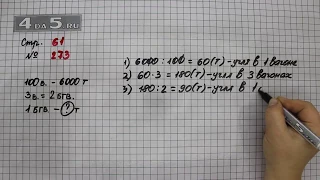 4DA5.RU
Стр. 61
№ 273
100 в. - 6000 т
3 в. = 2 бгв.
1 бгв - ? т
1) 6000 : 100 = 60 (т) - угля в 1 вагоне
2) 60 · 3 = 180 (т) - угля в 3 вагонах
3) 180 : 2 = 90 (т) - угля в 1